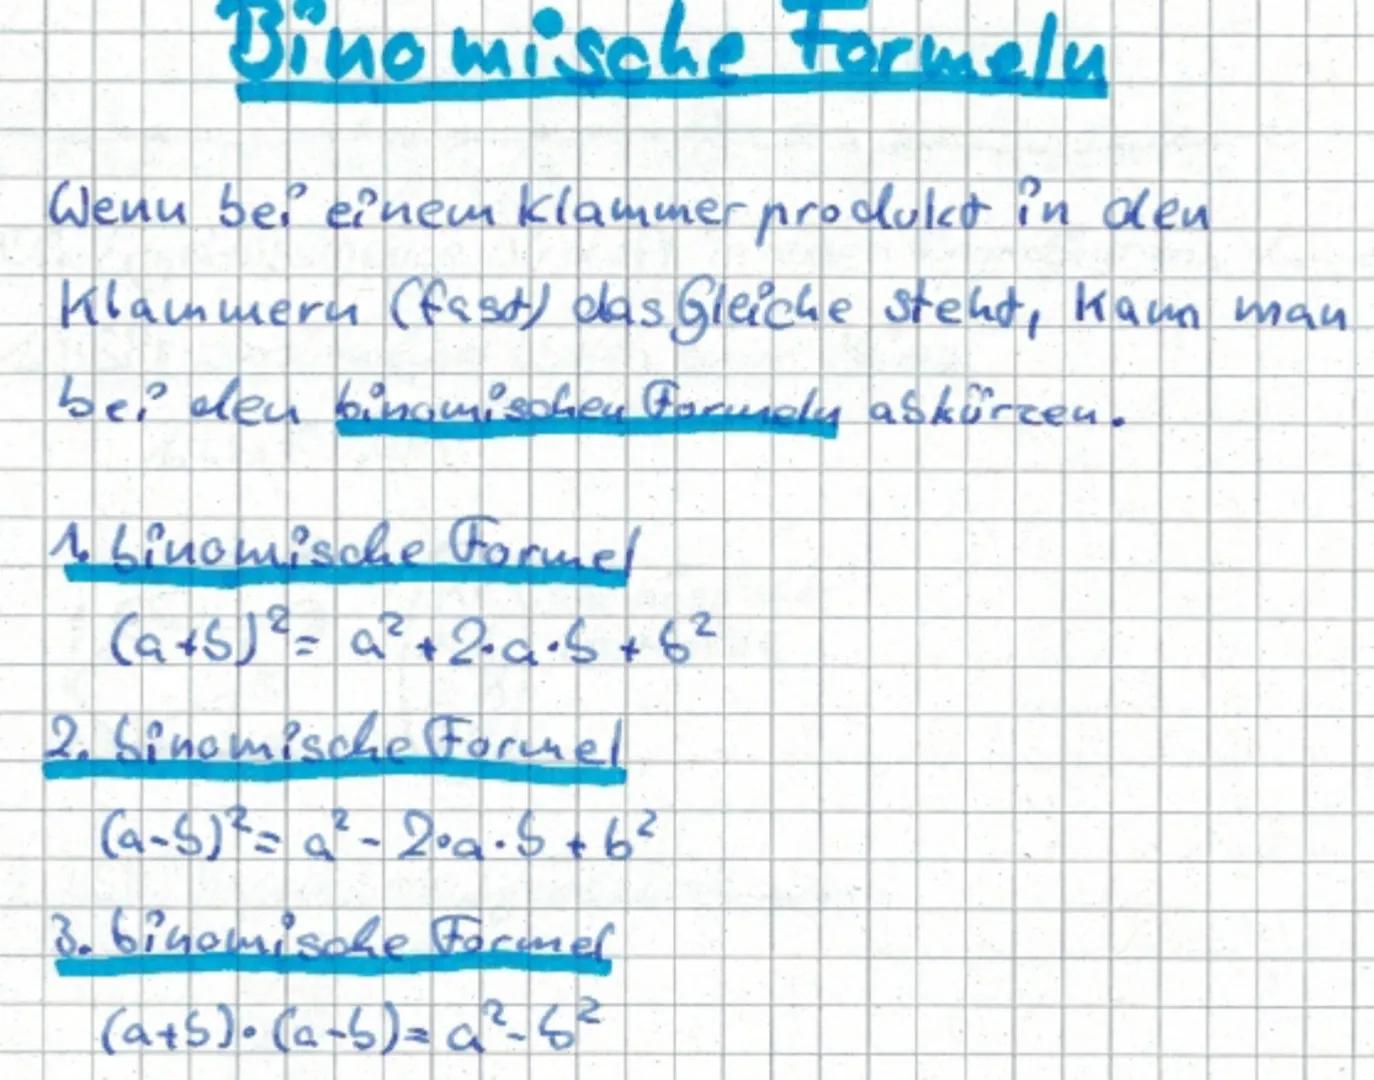 Binomische Formeln
Wenn bei einem Klammerprodukt in den
Klammern (fast) das Gleiche steht, kann man
bei den binomischen Formeln abkürzen.
1. binomische Formel
(a+b)²= a²+2·a·b+b²
2. binomische Formel
(a-b)²= a²-2·a·b+b²
3. binomische Formel
(a+b)·(a-b)= a²-b²